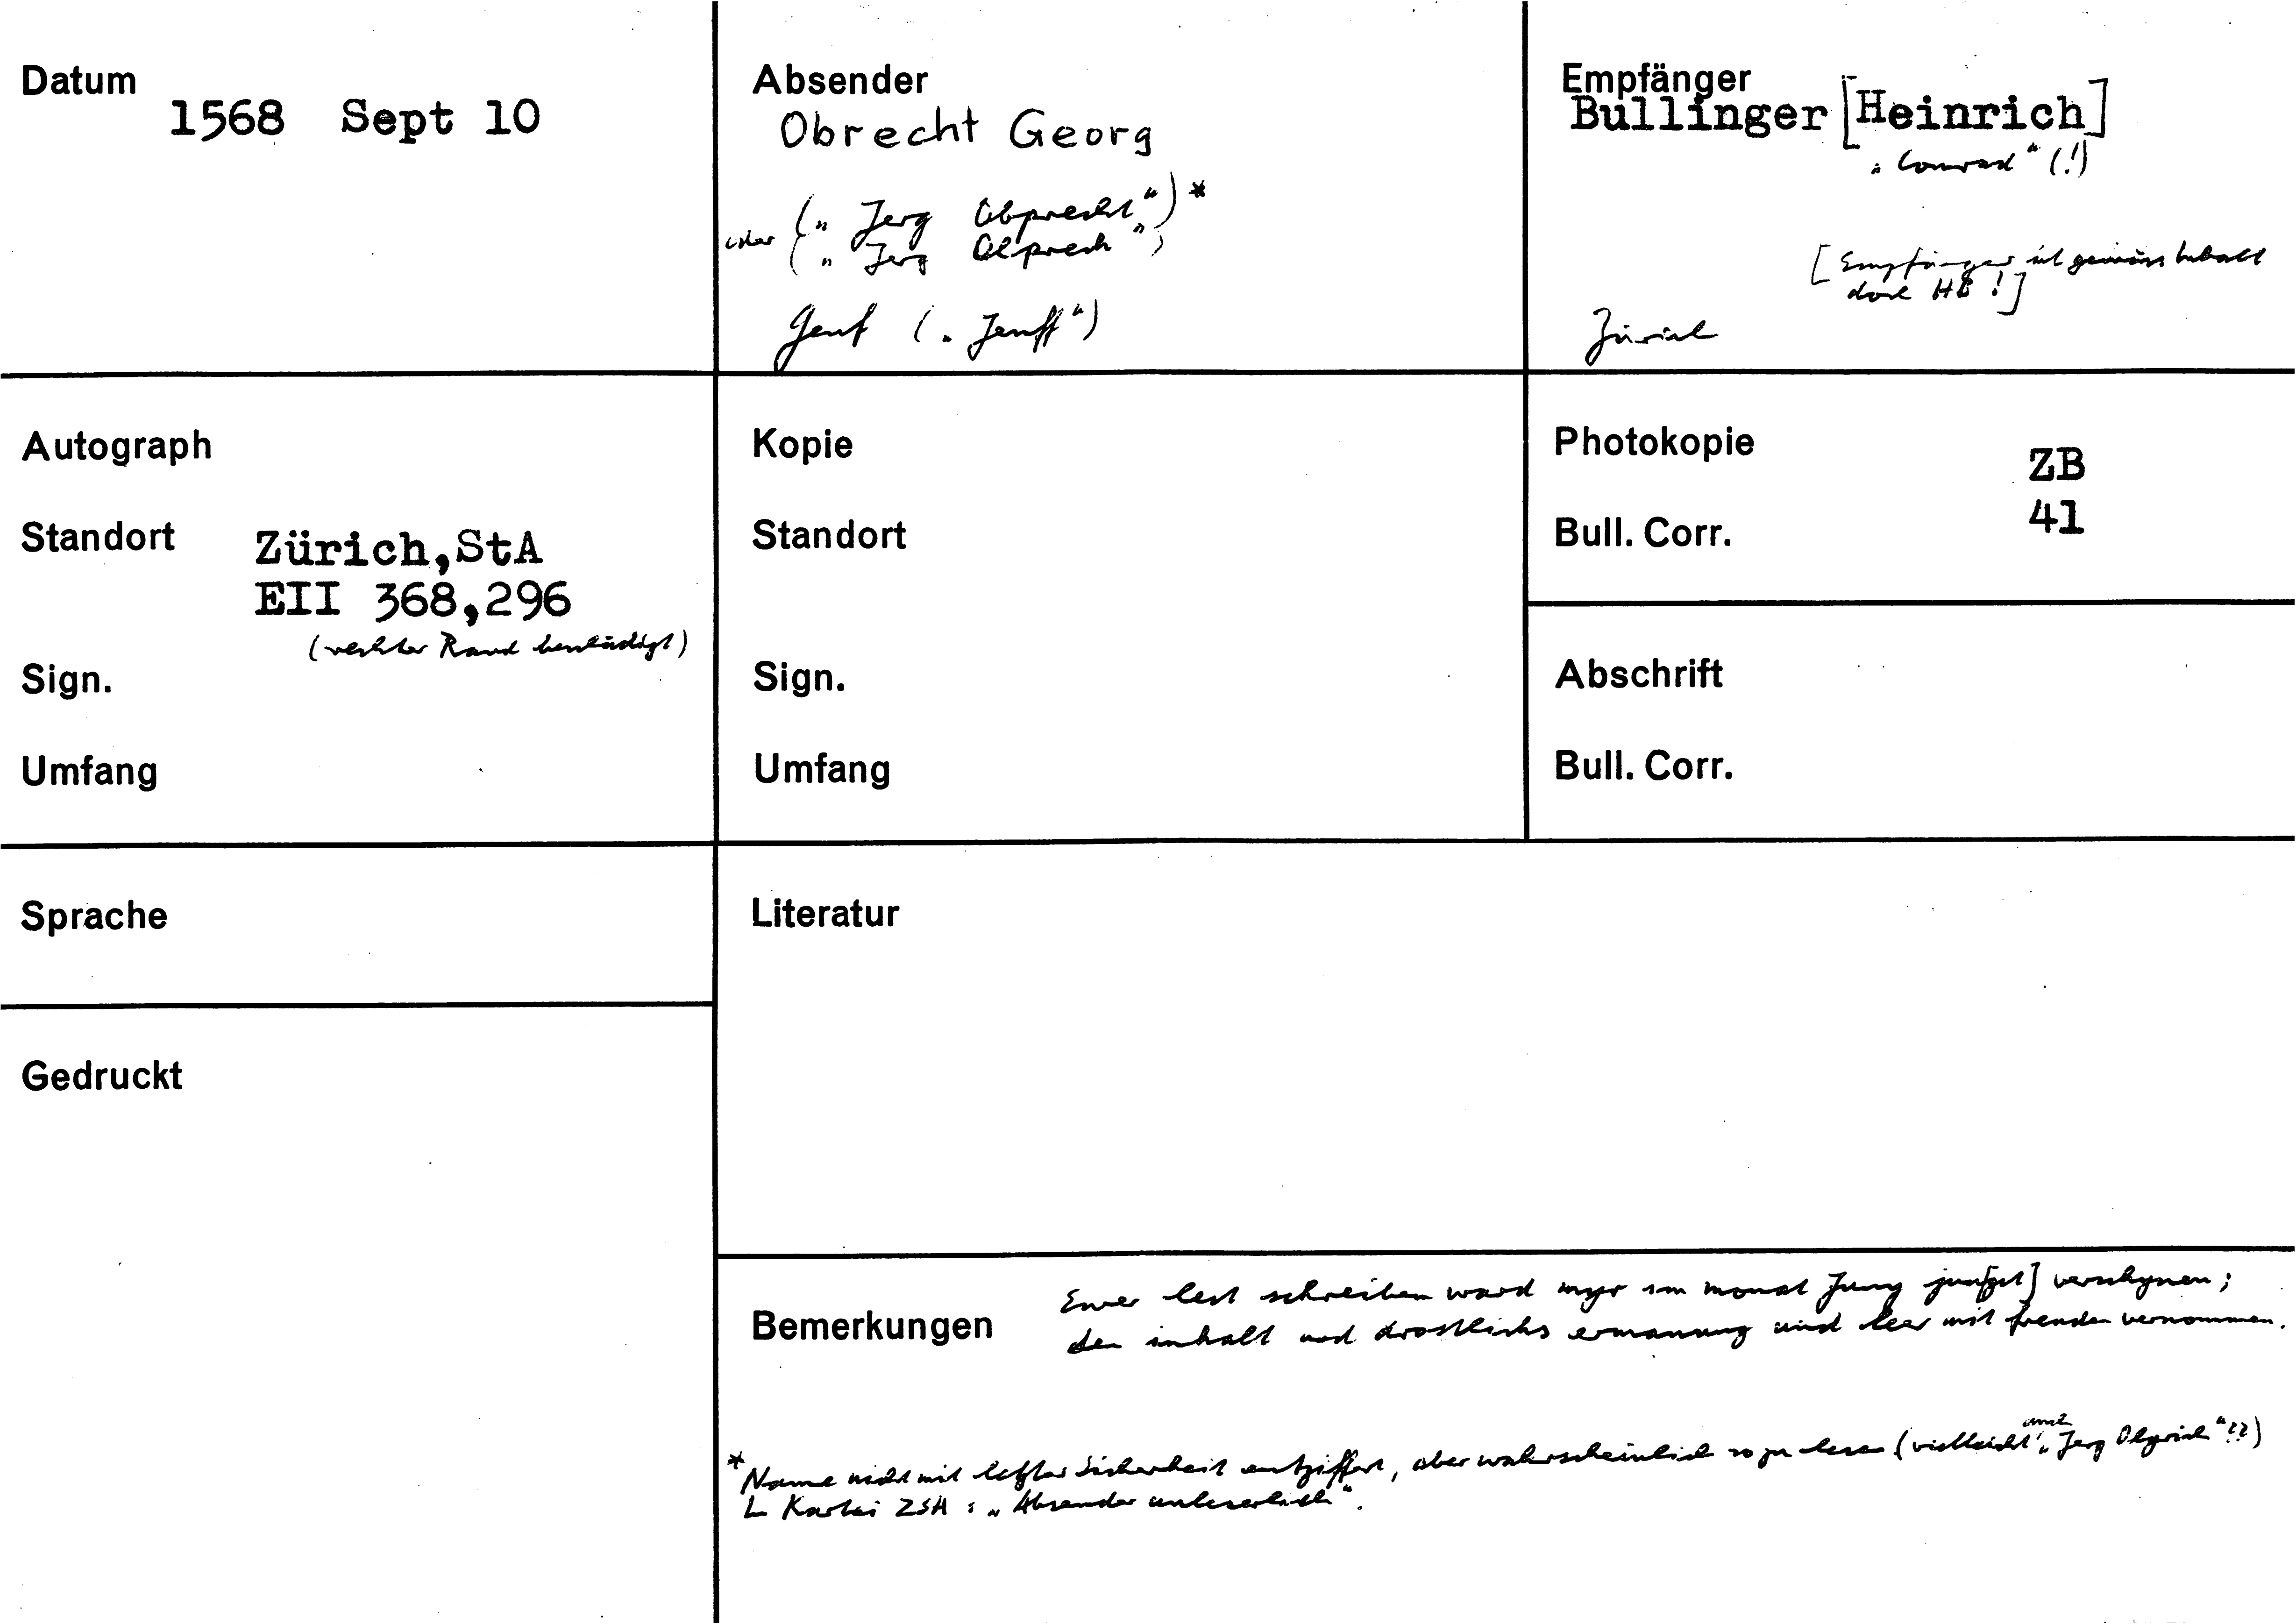 Datum
1568 Sept 10
Absender
Obrecht Georg
(„ Jerg Obprecht“)*
oder („ Jerg Olprech“)
Genf („ Jenff“)
Empfänger
Bullinger [Heinrich]
„Conrad“ (!)
[Empfänger ist gemäss Inhalt
doch HB!]
Zürich
Autograph
Standort
Zürich,StA
EII 368,296
(rechter Rand beschädigt)
Sign.
Umfang
Kopie
Standort
Sign.
Umfang
Photokopie
ZB
Bull. Corr.
41
Abschrift
Bull. Corr.
Sprache
Literatur
Gedruckt
Bemerkungen
Ewer lest schreiben ward myr im monat Juny jun[gst] verschynen;
den inhalt und drostlichs ermanung und leer mit freuden vernommen.
* Name nicht mit letzter Sicherheit entziffert, aber wahrscheinlich so zu lesen (vielleicht auch „Jerg Olgrich“??)
Kartei ZSA: „Absender unleserlich“.